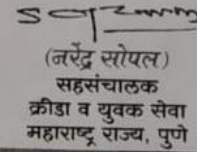 (नरेंद्र सोपल)
सहसंचालक
क्रीडा व युवक सेवा
महाराष्ट्र राज्य, पुणे